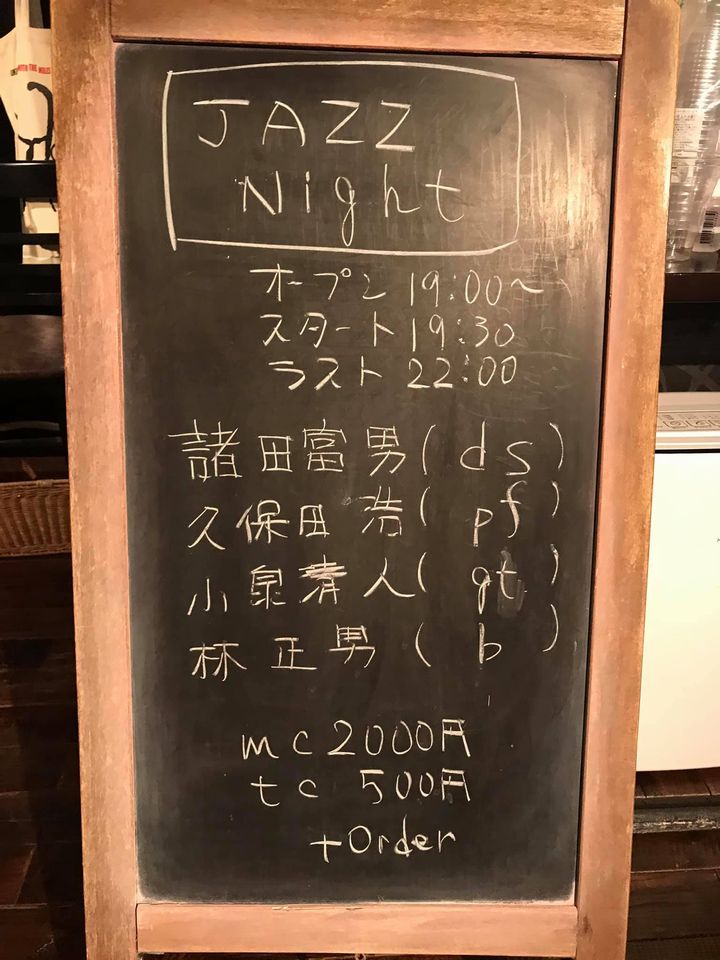 JAZZ
Night
オープン 19:00～
スタート 19:30
ラスト 22:00
諸田富男(ds)
久保田 浩(pf)
小泉清人(gt)
林正男(b)
mc2000円
tc 500円
+Order